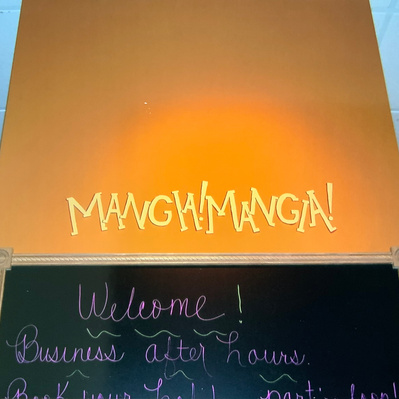 MANGIA!MANGIA!
Welcome!
Business after hours.
Book your